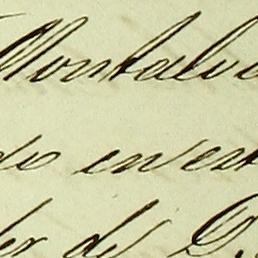 Montalvo
do en est
der del D.